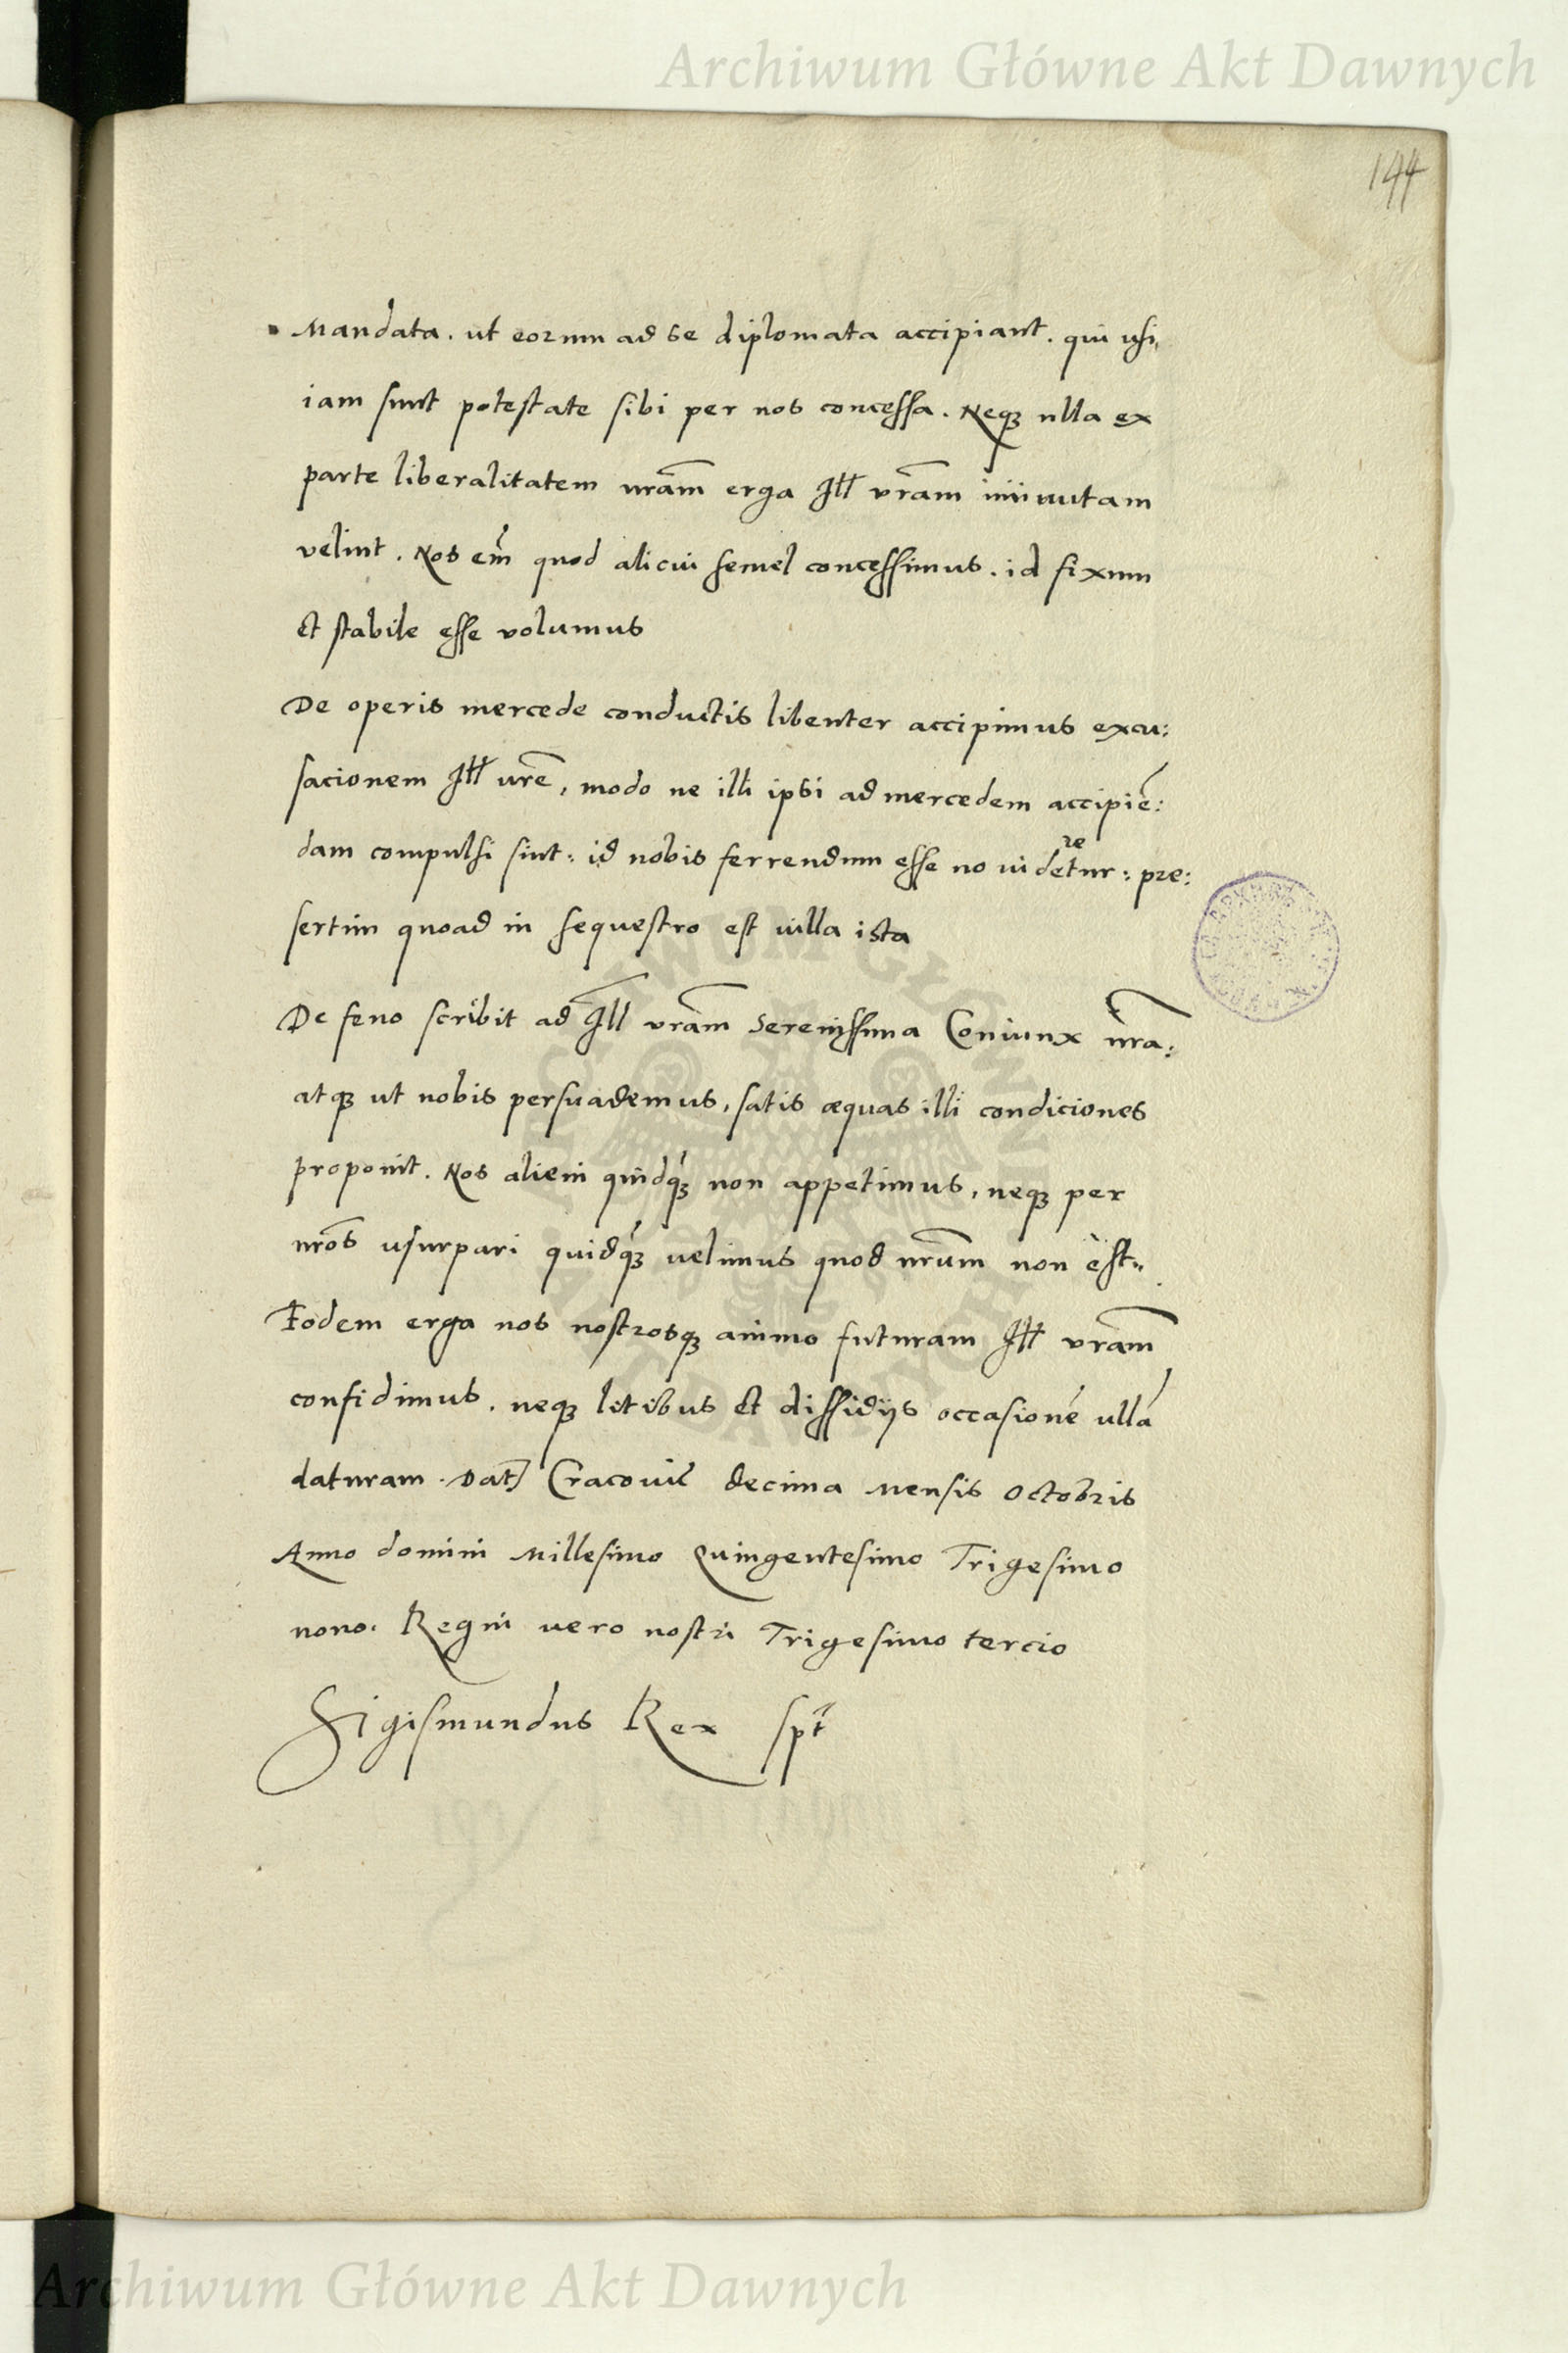 Archiwum Główne Akt Dawnych
144
Mandata. ut eorum ad se diplomata accipiant. qui usi,
iam sunt potestate sibi per nos concessa. Neqꝫ ulla ex
parte liberalitatem nrãm erga Ill vrãm iminutam
velint. Nos em̃ quod alicui semel concessimus. id fixum
et stabile esse volumus
De operis mercede conductis libenter accipimus excu:
sacionem Ill vrẽ, modo ne illi ipsi ad mercedem accipiẽ:
dam compulsi sint: id nobis ferrendum esse no videtur: pre:
re
sertim quoad in sequestro est villa ista
De feno scribit ad Ill vrãm Serenissima Coniunx nrã:
atqꝫ ut nobis persuademus, satis æquas illi condiciones
proponit. Nos alieni quidqꝫ non appetimus, neqꝫ per
nrõs usurpari quidqꝫ velimus quod nrũm non est..
Eodem erga nos nostrosqꝫ animo futuram Ill vrãm
confidimus. neqꝫ litibus et dissidijs occasionẽ ullã
daturam. Dat Cracovie decima Mensis Octobris
Anno domini Millesimo Quingentesimo Trigesimo
nono. Regni vero nostri Trigesimo tercio
Sigismundus Rex spt̃
Archiwum Główne Akt Dawnych